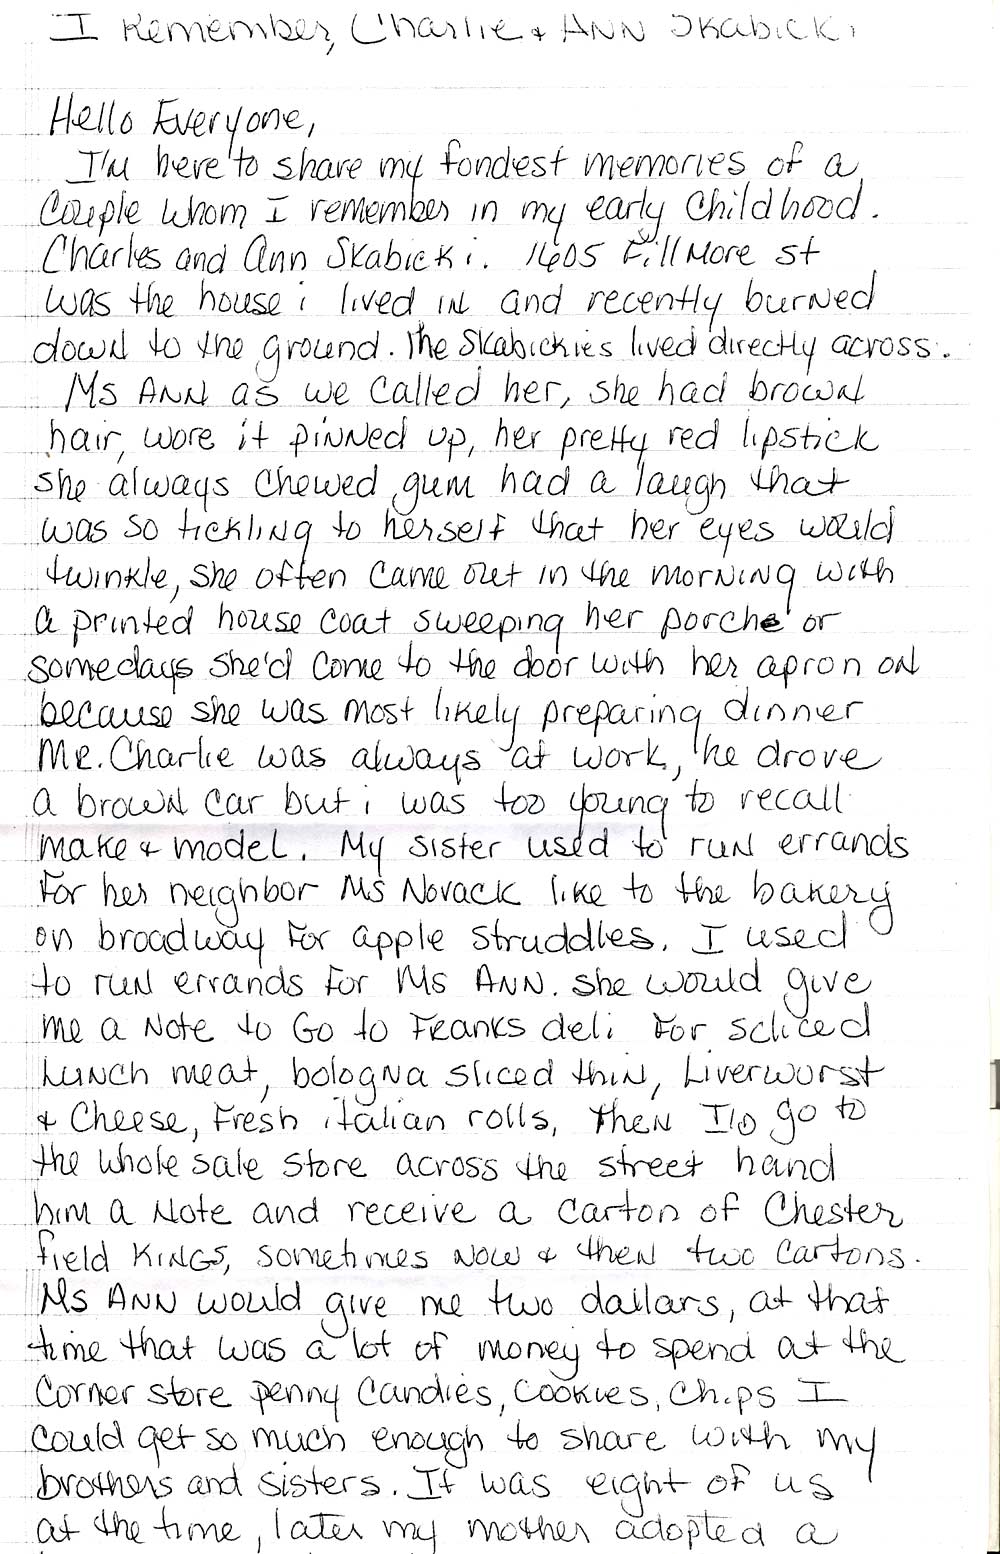 I Remember, Charlie & ANN Skabicki
Hello Everyone,
I'm here to share my fondest memories of a
Couple whom I remember in my early Childhood.
Charles and Ann Skabicki. 1605 FillMore st
was the house i lived in and recently burned
down to the ground. The Skabickies lived directly across.
Ms ANN as we called her, she had brown
hair, wore it pinned up, her pretty red lipstick
she always chewed gum had a laugh that
was so tickling to herself that her eyes would
twinkle, she often came out in the morning with
a printed house coat sweeping her porche or
somedays she'd come to the door with her apron on
because she was most likely preparing dinner
MR. Charlie was always at work, he drove
a brown car but i was too young to recall
make & model. My sister used to run errands
For her neighbor Ms Novack like to the bakery
on broadway For apple struddles. I used
to run errands For Ms ANN. she would give
me a Note to Go to Franks deli For scliced
Lunch meat, bologna sliced thin, Liverwurst
& Cheese, Fresh italian rolls, Then I'D go to
the whole sale store across the street hand
him a Note and receive a carton of Chester
field KINGS, sometimes now & then two cartons.
Ms ANN would give me two dallars, at that
time that was a lot of money to spend at the
Corner store penny Candies, Cookies, Chips I
Could get so much enough to share with my
brothers and sisters. It was eight of us
at the time, later my mother adopted a